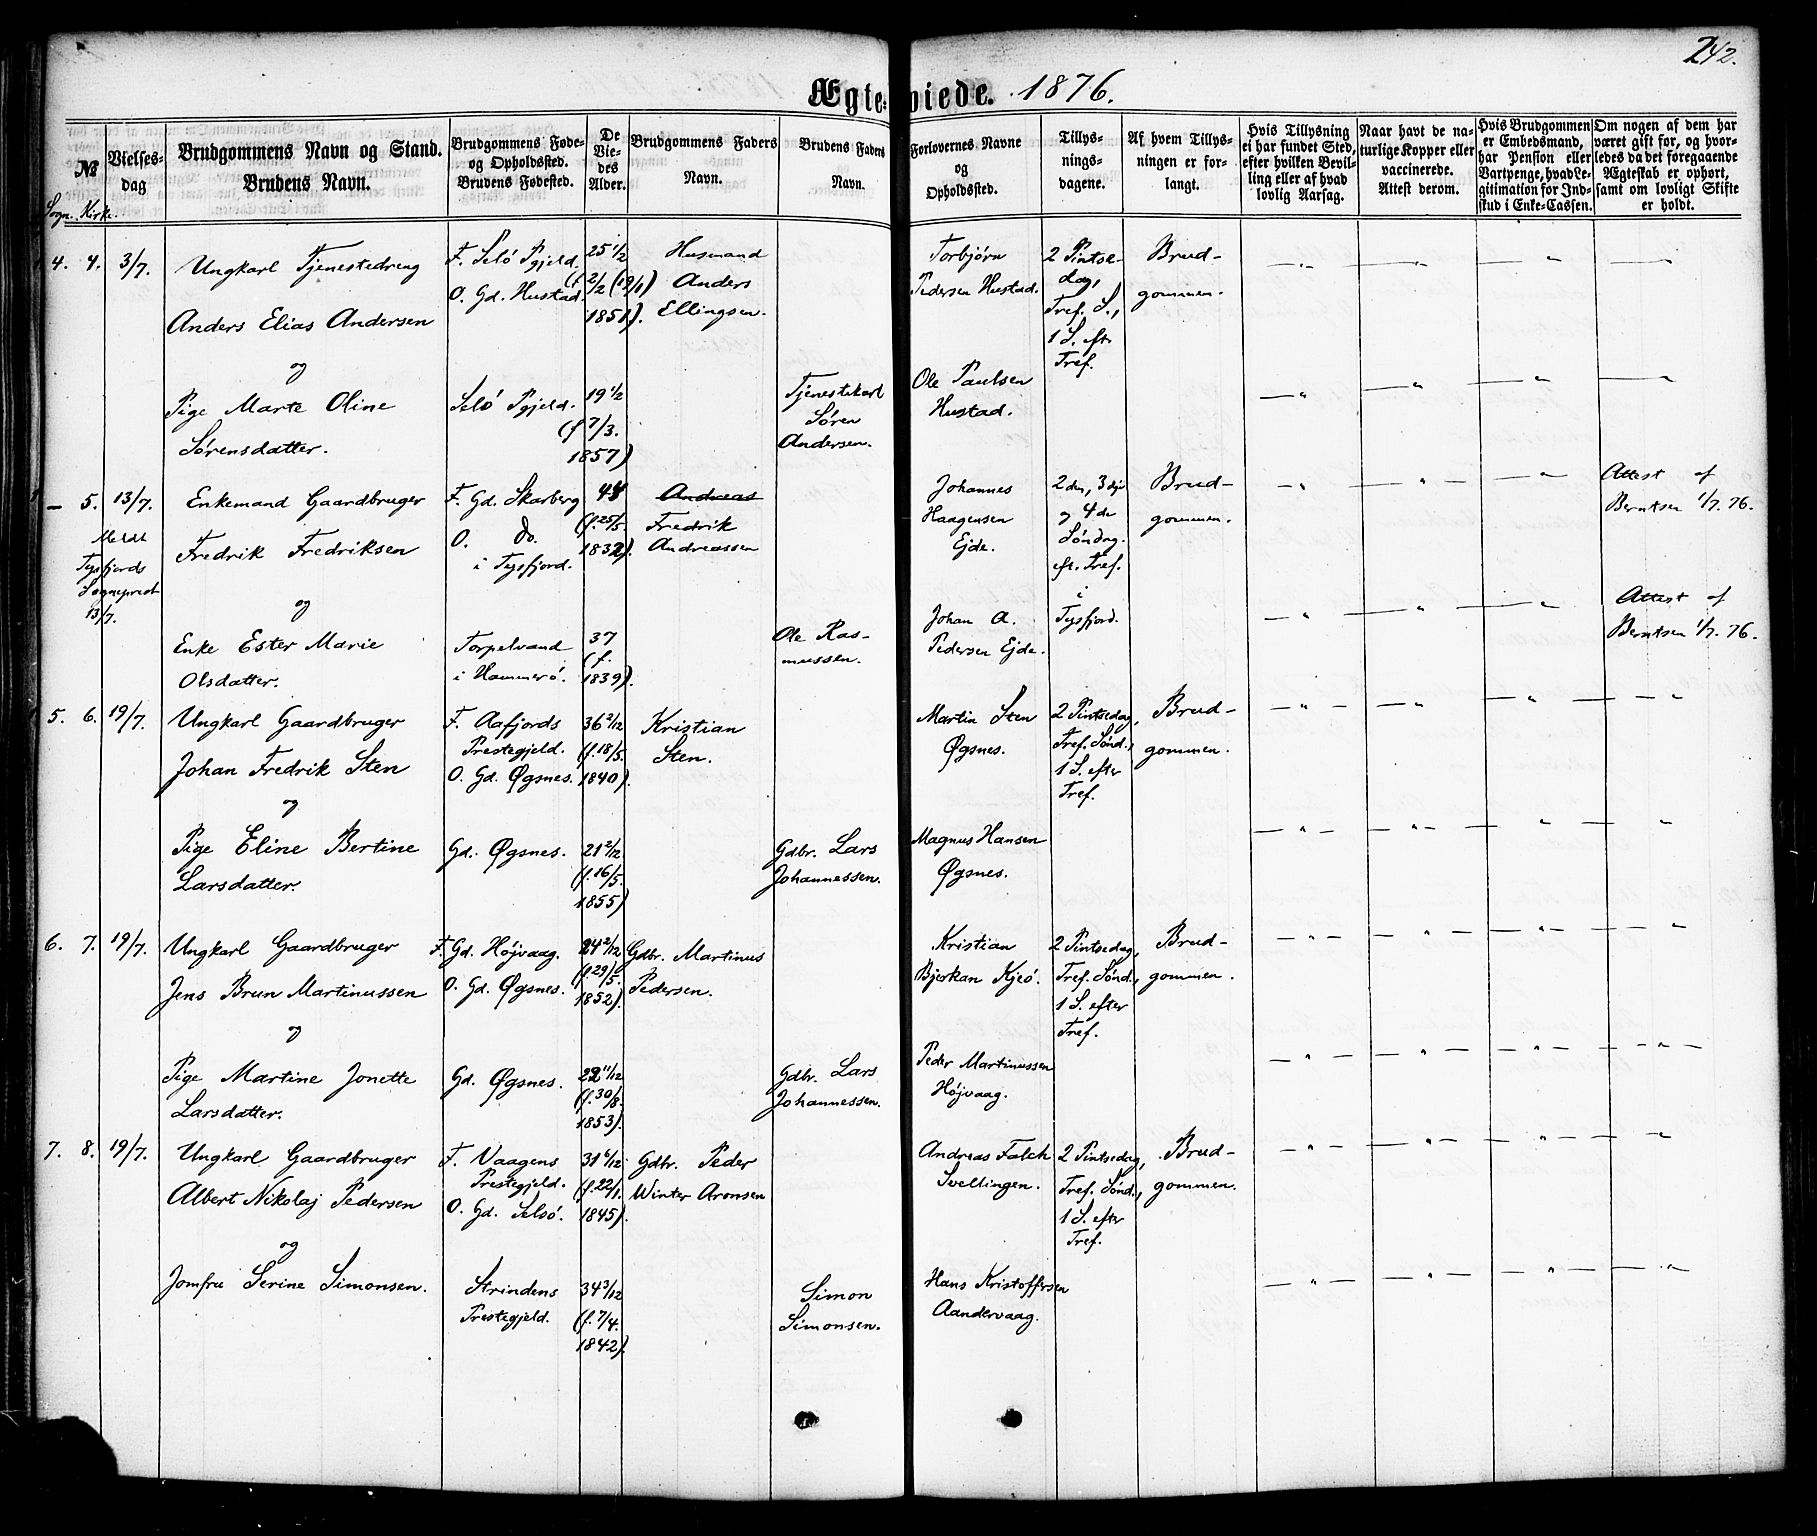 242.
Ægteviede. 1876.
№
Sogn. Kirke.
Vielses-
dag
Brudgommens Navn og Stand.
Brudens Navn.
Brudgommens Føde-
og Opholdssted.
Brudens Fødested.
De
Vie-
des
Alder.
Brudgommens Faders
Navn.
Brudens Faders
Navn.
Forlovernes Navne
og
Opholdssted.
Tillys-
nings-
dagene.
Af hvem Tillys-
ningen er for-
langt.
Hvis Tillysning
ei har fundet Sted,
efter hvilken Bevil-
ling eller af hvad
lovlig Aarsag.
Naar havt de na-
turlige Kopper eller
vaccinerede.
Attest derom.
Hvis Brudgommen
er Embedsmand,
har Pension eller
Vartpenge, hvad Le-
gitimation for Ind-
skud i Enke-Cassen.
Om nogen af dem har
været gift før, og hvor-
ledes da det foregaaende
Ægteskab er ophørt,
samt om lovligt Skifte
er holdt.
4. 4. 3/7.
Ungkarl Tjenestedreng
Anders Elias Andersen
og
Pige Marte Oline
Sørensdatter.
F. Selö Pgjeld.
O. Gd. Hustad.
Selö Pgjeld.
25 1/2
(f. 2/2 (19/1)
1851).
19 1/2
(f 7/3.
1857)
Husmand
Anders
Ellingsen.
Tjenestekarl
Søren
Andersen.
Torbjørn
Pedersen Hustad.
Ole Paulsen
Hustad.
2 Pintse-
dag,
Tref. S.,
1 S. eft.
Tref.
Brud-
gommen.
— 5. 13/7.
Meldt
Tysfjords
Sogneprest
13/7.
Enkemand Gaardbruger
Fredrik Fredriksen
og
Enke Ester Marie
Olsdatter.
F. Gd. Skarberg
O. do.
i Tysfjord.
Torpelvand
i Hammerö.
44
(f. 25/5.
1832).
37
(f.
1839).
Andreas
Fredrik
Andreassen
Ole Ras-
mussen.
Johannes
Haagensen
Ejde.
Johan A.
Pedersen Ejde.
2den, 3dje
og 4de
Søndag.
eft. Tref.
i
Tysfjord.
Brud-
gommen.
Attest af
Berntsen 1/7. 76.
Attest af
Berntsen 1/7. 76.
5. 6. 19/7.
Ungkarl Gaardbruger
Johan Fredrik Sten
og
Pige Eline Bertine
Larsdatter.
F. Aafjords
Prestegjeld.
O. Gd. Øgsnes.
Gd. Øgsnes.
36 2/12
(f. 18/5.
1840).
21 2/12
(f. 16/5.
1855)
Kristian
Sten.
Gdbr. Lars
Johannessen.
Martin Sten
Øgsnes.
Magnus Hansen
Øgsnes.
2 Pintsedag,
Tref. Sönd.,
1 S. efter
Tref.
Brud-
gommen.
6. 7. 19/7.
Ungkarl Gaardbruger
Jens Brun Martinussen
og
Pige Martine Jonette
Larsdatter.
F. Gd. Højvaag.
O. Gd. Øgsnes.
Gd. Øgsnes.
24 2/12
(f. 29/5.
1852).
22 11/12
(f. 30/8.
1853).
Gdbr. Martinus
Pedersen.
Gdbr. Lars
Johannessen.
Kristian
Bjerkan Kjeö.
Peder Martinussen
Højvaag.
2 Pintsedag,
Tref. Sönd.,
1 S. efter
Tref.
Brud-
gommen.
7. 8. 19/7.
Ungkarl Gaardbruger
Albert Nikolaj Pedersen
og
Jomfru Serine Simonsen.
F. Vaagens
Prestegjeld.
O. Gd. Selsö.
Strindens
Prestegjeld.
31 6/12
(f. 22/1.
1845).
34 3/12
(f. 7/4.
1842).
Gdbr. Peder
Winter Aronsen
Simon
Simonsen.
Andreas Falch
Svellingen.
Hans Kristoffersen
Aandervaag.
2 Pintsedag,
Tref. Sönd.,
1 S. efter
Tref.
Brud-
gommen.